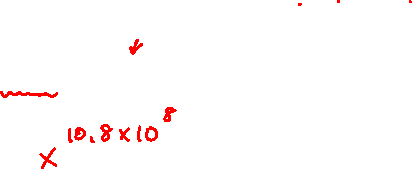 10.8 × 10⁸
×